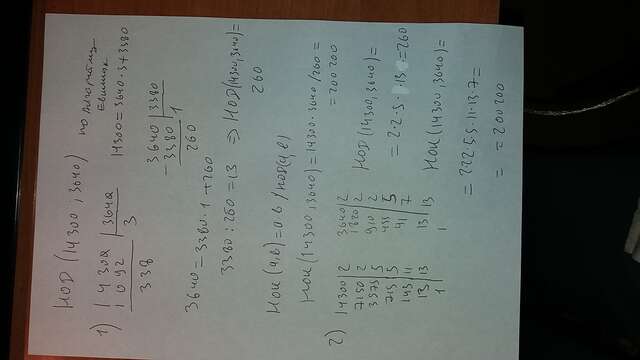 НОД (14300 ; 3640)
по алгоритму
Евклида
1) 14300 | 3640
1092 | 3
338
14300 = 3640·3+3380
3640 | 3380
- 3380 | 1
260
3640 = 3380·1 +260
3380 : 260 = 13 ⇒ НОД(14300,3640)=
260
НОК (a,b) = a·b / НОД(a,b)
НОК (14300, 3640) = 14300·3640 /260 =
= 200200
2) 14300 | 2
7150 | 2
3575 | 5
715 | 5
143 | 11
13 | 13
1
3640 | 2
1820 | 2
910 | 2
455 | 5
91 | 7
13 | 13
1
НОД (14300, 3640) =
= 2·2·5·13 =260
НОК (14300, 3640) =
= 2·2·2·5·5·11·13·7 =
= = 200200